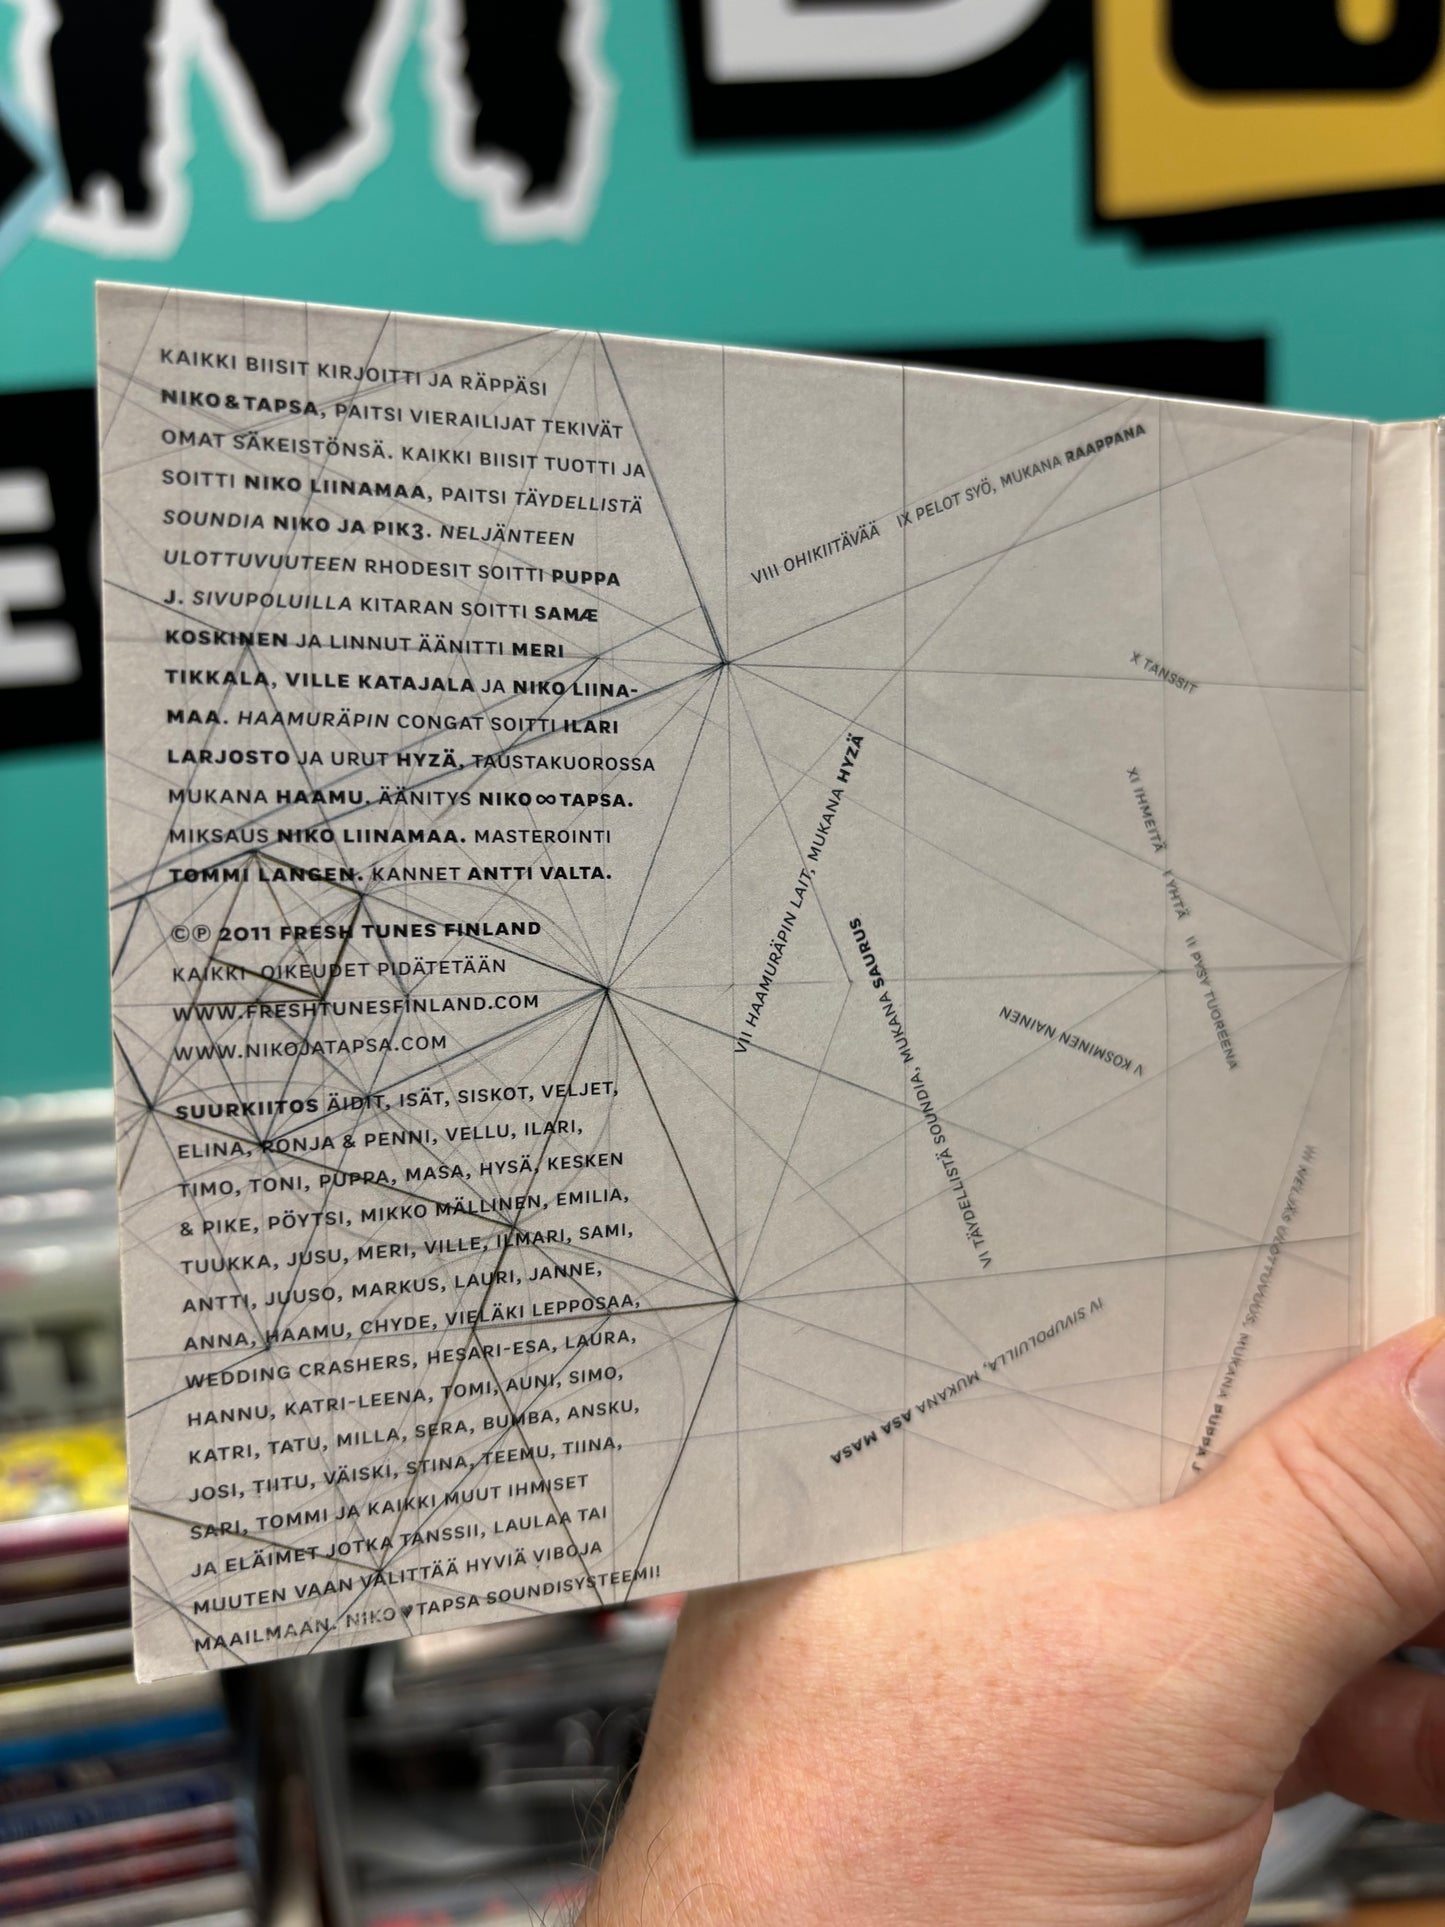 KAIKKI BIISIT KIRJOITTI JA RÄPPÄSI
NIKO&TAPSA, PAITSI VIERAILIJAT TEKIVÄT
OMAT SÄKEISTÖNSÄ. KAIKKI BIISIT TUOTTI JA
SOITTI NIKO LIINAMAA, PAITSI TÄYDELLISTÄ
SOUNDIA NIKO JA PIK3. NELJÄNTEEN
ULOTTUVUUTEEN RHODESIT SOITTI PUPPA
J. SIVUPOLUILLA KITARAN SOITTI SAMÆ
KOSKINEN JA LINNUT ÄÄNITTI MERI
TIKKALA, VILLE KATAJALA JA NIKO LIINA-
MAA. HAAMURÄPIN CONGAT SOITTI ILARI
LARJOSTO JA URUT HYZÄ, TAUSTAKUOROSSA
MUKANA HAAMU. ÄÄNITYS NIKO∞TAPSA.
MIKSAUS NIKO LIINAMAA. MASTEROINTI
TOMMI LANGEN. KANNET ANTTI VALTA.
©℗ 2011 FRESH TUNES FINLAND
KAIKKI OIKEUDET PIDÄTETÄÄN
WWW.FRESHTUNESFINLAND.COM
WWW.NIKOJATAPSA.COM
SUURKIITOS ÄIDIT, ISÄT, SISKOT, VELJET,
ELINA, RONJA & PENNI, VELLU, ILARI,
TIMO, TONI, PUPPA, MASA, HYSÄ, KESKEN
& PIKE, PÖYTSI, MIKKO MÄLLINEN, EMILIA,
TUUKKA, JUSU, MERI, VILLE, ILMARI, SAMI,
ANTTI, JUUSO, MARKUS, LAURI, JANNE,
ANNA, HAAMU, CHYDE, VIELÄKI LEPPOSAA,
WEDDING CRASHERS, HESARI-ESA, LAURA,
HANNU, KATRI-LEENA, TOMI, AUNI, SIMO,
KATRI, TATU, MILLA, SERA, BUMBA, ANSKU,
JOSI, TIITU, VÄISKI, STINA, TEEMU, TIINA,
SARI, TOMMI JA KAIKKI MUUT IHMISET
JA ELÄIMET JOTKA TANSSII, LAULAA TAI
MUUTEN VAAN VÄLITTÄÄ HYVIÄ VIBOJA
MAAILMAAN. NIKO♥TAPSA SOUNDISYSTEEMI!
VIII OHIKIITÄVÄÄ
IX PELOT SYÖ, MUKANA RAAPPANA
X TANSSIT
XI IHMEITÄ
I YHTÄ
II PYSY TUOREENA
III NELJÄS ULOTTUVUUS, MUKANA PUPPA J
IV SIVUPOLUILLA, MUKANA ASA MASA
V KOSMINEN NAINEN
VI TÄYDELLISTÄ SOUNDIA, MUKANA SAURUS
VII HAAMURÄPIN LAIT, MUKANA HYZÄ